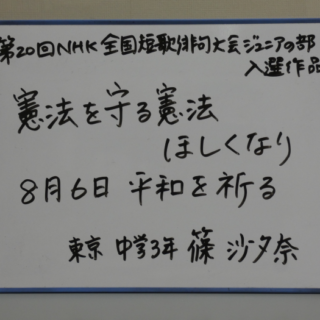 第20回NHK全国短歌俳句大会ジュニアの部
入選作品
憲法を守る憲法
ほしくなり
8月6日 平和を祈る
東京 中学3年 篠 沙夕奈